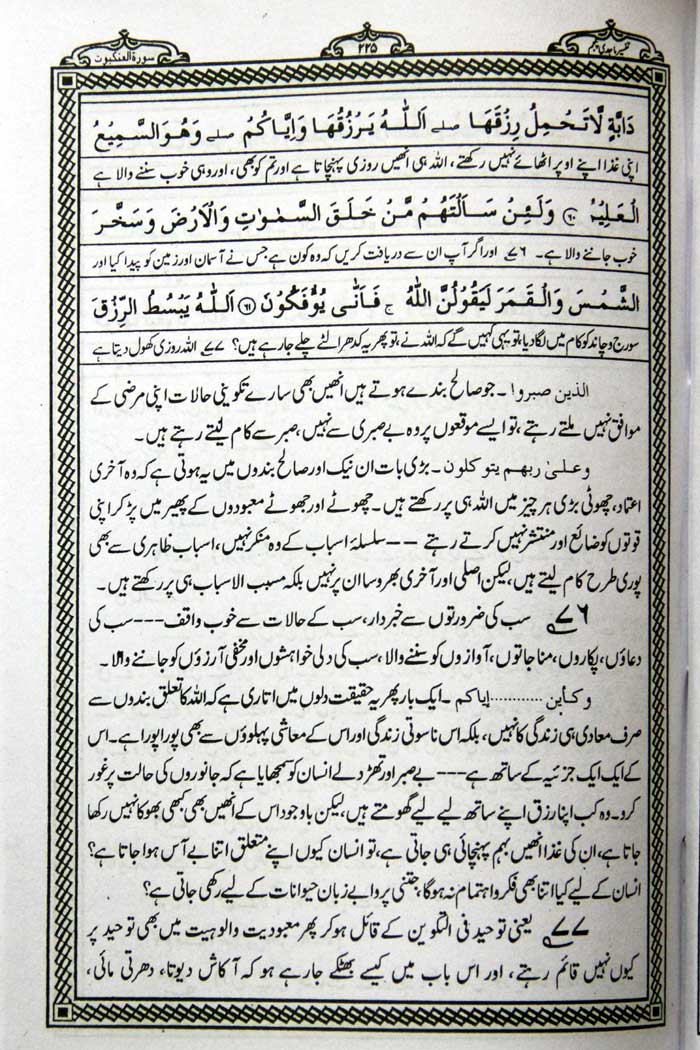 تفسیر ماجدی پنجم
۲۲۵
سورۃ العنکبوت
دَآبَّةٍ لَّا تَحْمِلُ رِزْقَهَا صلے اَللّٰهُ يَرْزُقُهَا وَاِيَّاكُمْ صلے وَهُوَ السَّمِيْعُ
اپنی غذا اپنے اوپر اٹھائے نہیں رکھتے، اللہ ہی انھیں روزی پہنچاتا ہے اور تم کو بھی، اور وہی خوب سننے والا ہے
الْعَلِيْمُ ﴿۶۰﴾ وَلَئِنْ سَاَلْتَهُمْ مَّنْ خَلَقَ السَّمٰوٰتِ وَالْاَرْضَ وَسَخَّرَ
خوب جاننے والا ہے۔ ۷۶ اور اگر آپ ان سے دریافت کریں کہ وہ کون ہے جس نے آسمان اور زمین کو پیدا کیا اور
الشَّمْسَ وَالْقَمَرَ لَيَقُوْلُنَّ اللّٰهُ ج فَاَنّٰى يُؤْفَكُوْنَ ﴿۶۱﴾ اَللّٰهُ يَبْسُطُ الرِّزْقَ
سورج و چاند کو کام میں لگا دیا، تو یہی کہیں گے کہ اللہ نے، تو پھر یہ کدھر الٹے چلے جا رہے ہیں؟ ۷۷ اللہ روزی کھول دیتا ہے
الذین صبروا۔ جو صالح بندے ہوتے ہیں انھیں بھی سارے تکوینی حالات اپنی مرضی کے
موافق نہیں ملتے رہتے، تو ایسے موقعوں پر وہ بے صبری سے نہیں، صبر سے کام لیتے رہتے ہیں۔
وعلیٰ ربھم یتوکلون۔ بڑی بات ان نیک اور صالح بندوں میں یہ ہوتی ہے کہ وہ آخری
اعتماد، چھوٹی بڑی ہر چیز میں اللہ ہی پر رکھتے ہیں۔ چھوٹے اور جھوٹے معبودوں کے پھیر میں پڑ کر اپنی
قوتوں کو ضائع اور منتشر نہیں کرتے رہتے --- سلسلۂ اسباب کے وہ منکر نہیں، اسباب ظاہری سے بھی
پوری طرح کام لیتے ہیں، لیکن اصلی اور آخری بھروسا ان پر نہیں بلکہ مسبب الاسباب ہی پر رکھتے ہیں۔
۷۶ سب کی ضرورتوں سے خبردار، سب کے حالات سے خوب واقف --- سب کی
دعاؤں، پکاروں، مناجاتوں، آوازوں کو سننے والا، سب کی دلی خواہشوں اور مخفی آرزؤں کو جاننے والا۔
وکأین ............ إیاکم۔ ایک بار پھر یہ حقیقت دلوں میں اتاری ہے کہ اللہ کا تعلق بندوں سے
صرف معادی ہی زندگی کا نہیں، بلکہ اس ناسوتی زندگی اور اس کے معاشی پہلوؤں سے بھی پورا پورا ہے۔ اس
کے ایک ایک جزئیہ کے ساتھ ہے --- بے صبر اور تھڑدلے انسان کو سمجھایا ہے کہ جانوروں کی حالت پر غور
کرو۔ وہ کب اپنا رزق اپنے ساتھ لیے لیے گھومتے ہیں، لیکن باوجود اس کے انھیں بھی کبھی بھوکا نہیں رکھا
جاتا ہے، ان کی غذا انھیں بہم پہنچائی ہی جاتی ہے، تو انسان کیوں اپنے متعلق اتنا بے آس ہوا جاتا ہے؟
انسان کے لیے کیا اتنا بھی فکر و اہتمام نہ ہوگا، جتنی پروا بے زبان حیوانات کے لیے رکھی جاتی ہے؟
۷۷ یعنی توحید فی التکوین کے قائل ہو کر پھر معبودیت و الوہیت میں بھی توحید پر
کیوں نہیں قائم رہتے، اور اس باب میں کیسے بھٹکے جا رہے ہو کہ آکاش دیوتا، دھرتی مائی،